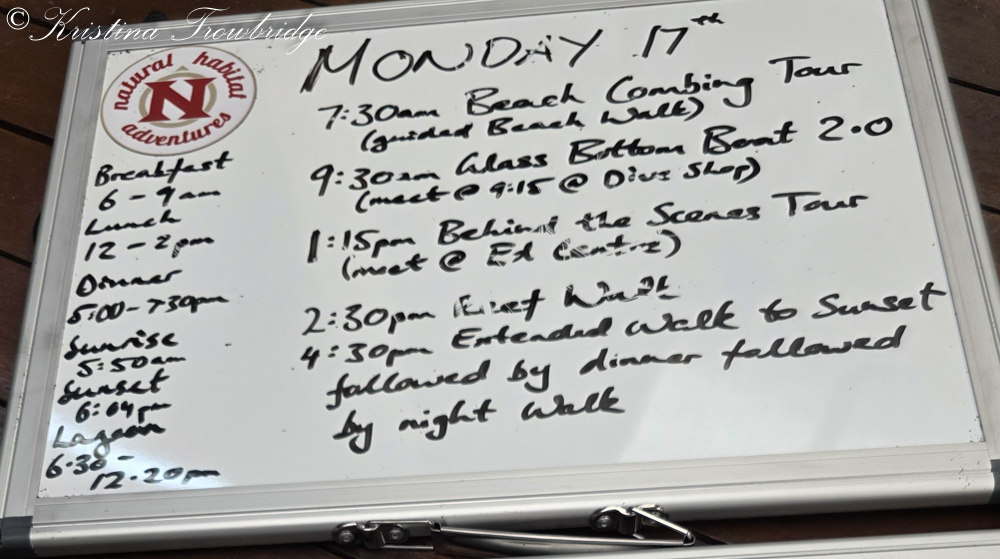 © Kristina Trowbridge
MONDAY 17th
natural habitat
N
adventures
7:30am Beach Combing Tour
(guided Beach Walk)
9:30am Glass Bottom Boat 2.0
(meet @ 9:15 @ Dive Shop)
1:15pm Behind the Scenes Tour
(meet @ Ed Centre)
2:30pm Reef Walk
4:30pm Extended Walk to Sunset
followed by dinner followed
by night walk
Breakfast
6 - 9am
Lunch
12 - 2pm
Dinner
5:00 - 7:30pm
Sunrise
5:50am
Sunset
6:04pm
Lagoon
6.30 -
12.20pm